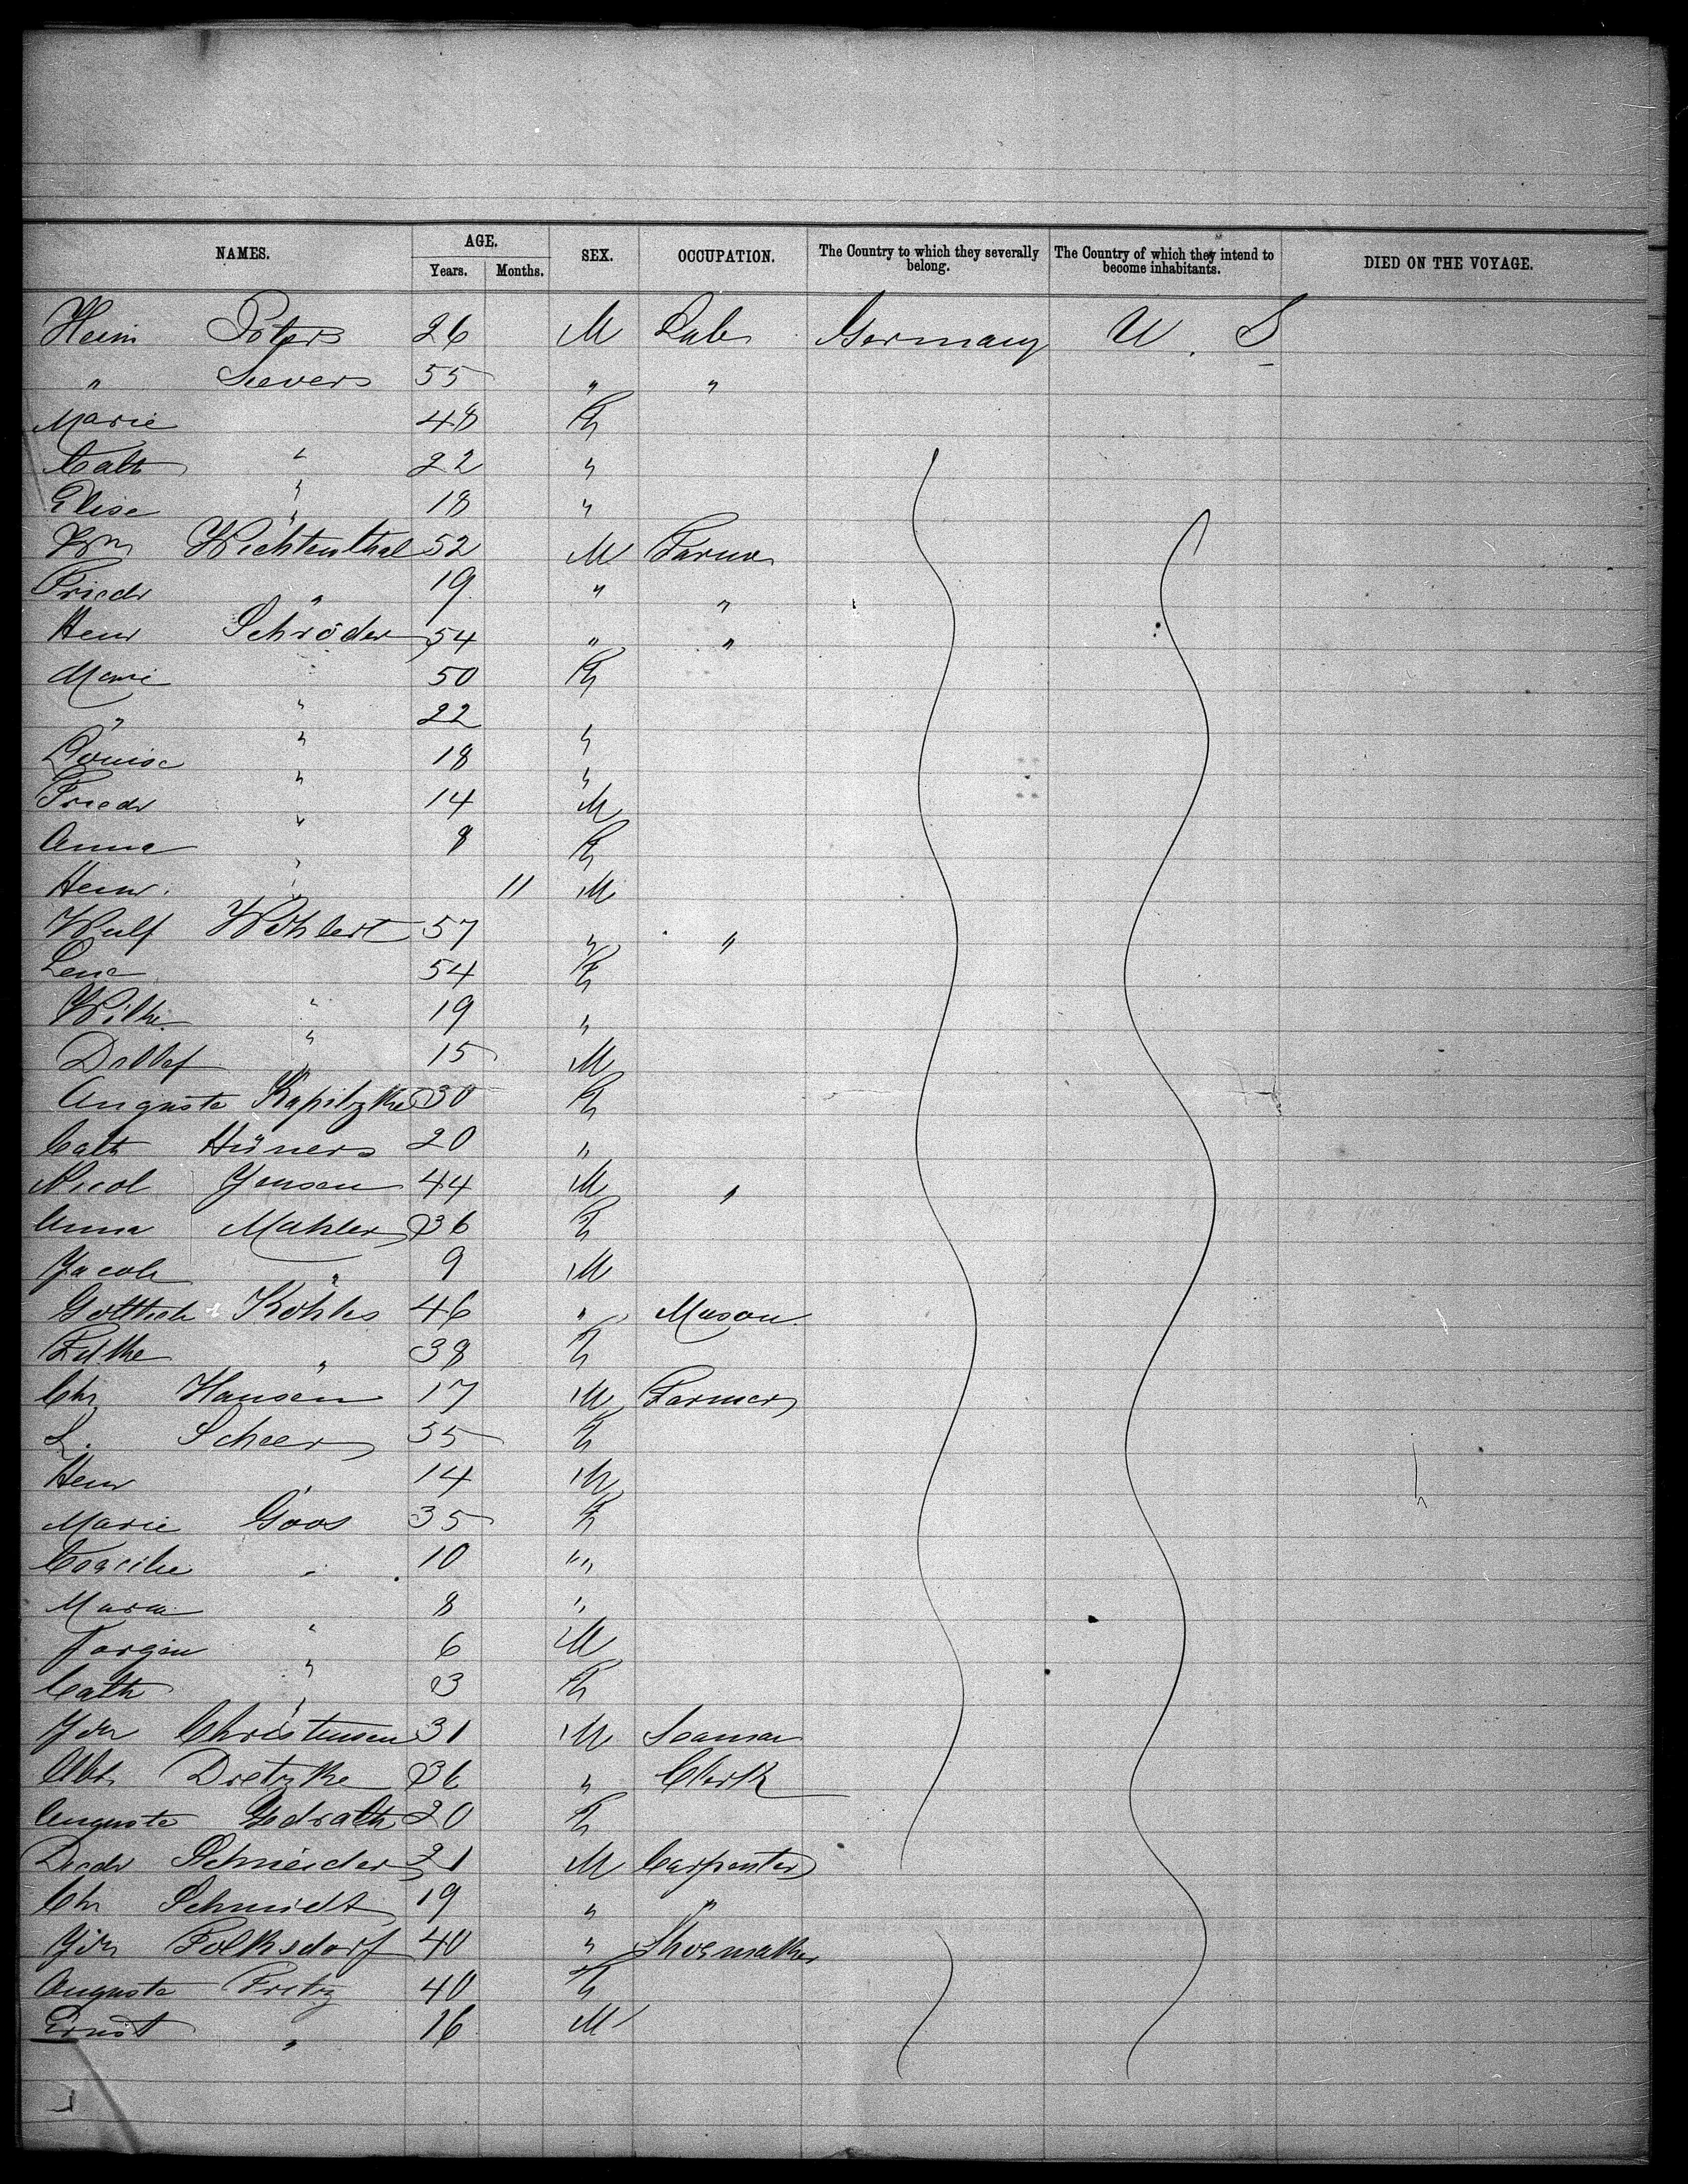 NAMES. AGE. SEX. OCCUPATION. The Country to which they severally belong. The Country of which they intend to become inhabitants. DIED ON THE VOYAGE.
Years. Months.
Heinr Peters 26 M Lab Germany U. S
" Seevers 55 " "
Marie 48 F
Cath " 22 "
Elise " 18 "
Wm Wichtenthal 52 M Farmer
Friedr " 19 " "
Heinr Schröder 54 " "
Marie " 50 F
" " 22
Louise " 18 "
Friedr " 14 M
Anna " 8 F
Heinr. " 11 M
Wulf Wohlert 57 " "
Lena 54 F
Wilhe " 19 "
Detlef " 15 M
Auguste Kapitzke 30 F
Cath Hüners 20 "
Nicol Jensen 44 M "
Anna Mahler 36 F
Jacob " 9 M
Gottlieb Kohls 46 " Mason
" 38 F
Chr Hansen 17 M Farmer
L. Scheer 55 F
Heinr " 14 M
Marie Goos 35 F
Caecilie " 10 "
Maria 8 "
Jorgen " 6 M
Cath " 3 F
Joh Christensen 31 M Seaman
Abr Dietzke 36 " Clerk
Auguste 20 F
Diedr Schneider 21 M Carpenter
Chr Schmidt 19 " "
Joh Folksdorf 40 " Shoemaker
Auguste Fritz 40 F
Ernst " 16 M